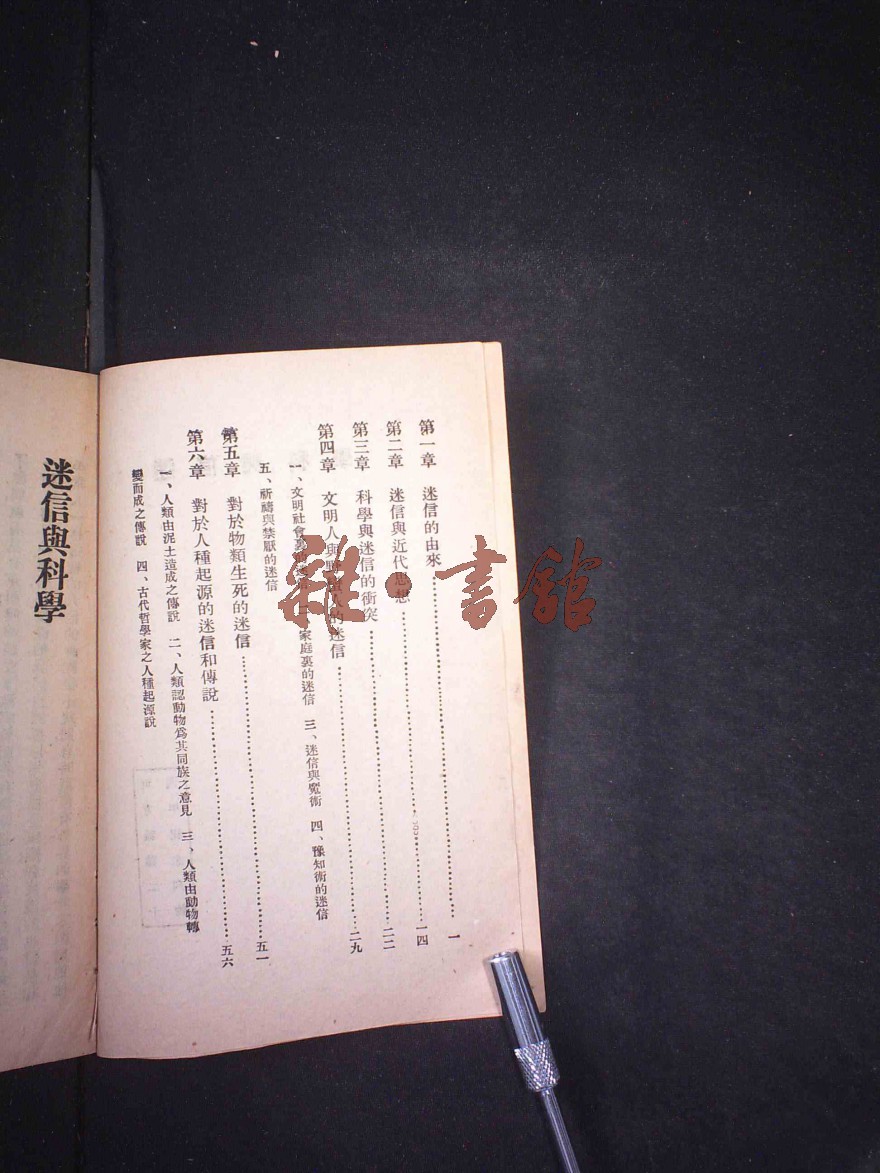 第一章 迷信的由來 一
第二章 迷信與近代思想 一四
第三章 科學與迷信的衝突 二二
第四章 文明人與野蠻人的迷信 二九
一、文明社會裏 家庭裏的迷信 三、迷信與魔術 四、豫知術的迷信
五、祈禱與禁厭的迷信
第五章 對於物類生死的迷信 五一
第六章 對於人種起源的迷信和傳說 五六
一、人類由泥土造成之傳說 二、人類認動物爲其同族之意見 三、人類由動物轉
變而成之傳說 四、古代哲學家之人種起源說
迷信與科學
雜·書館